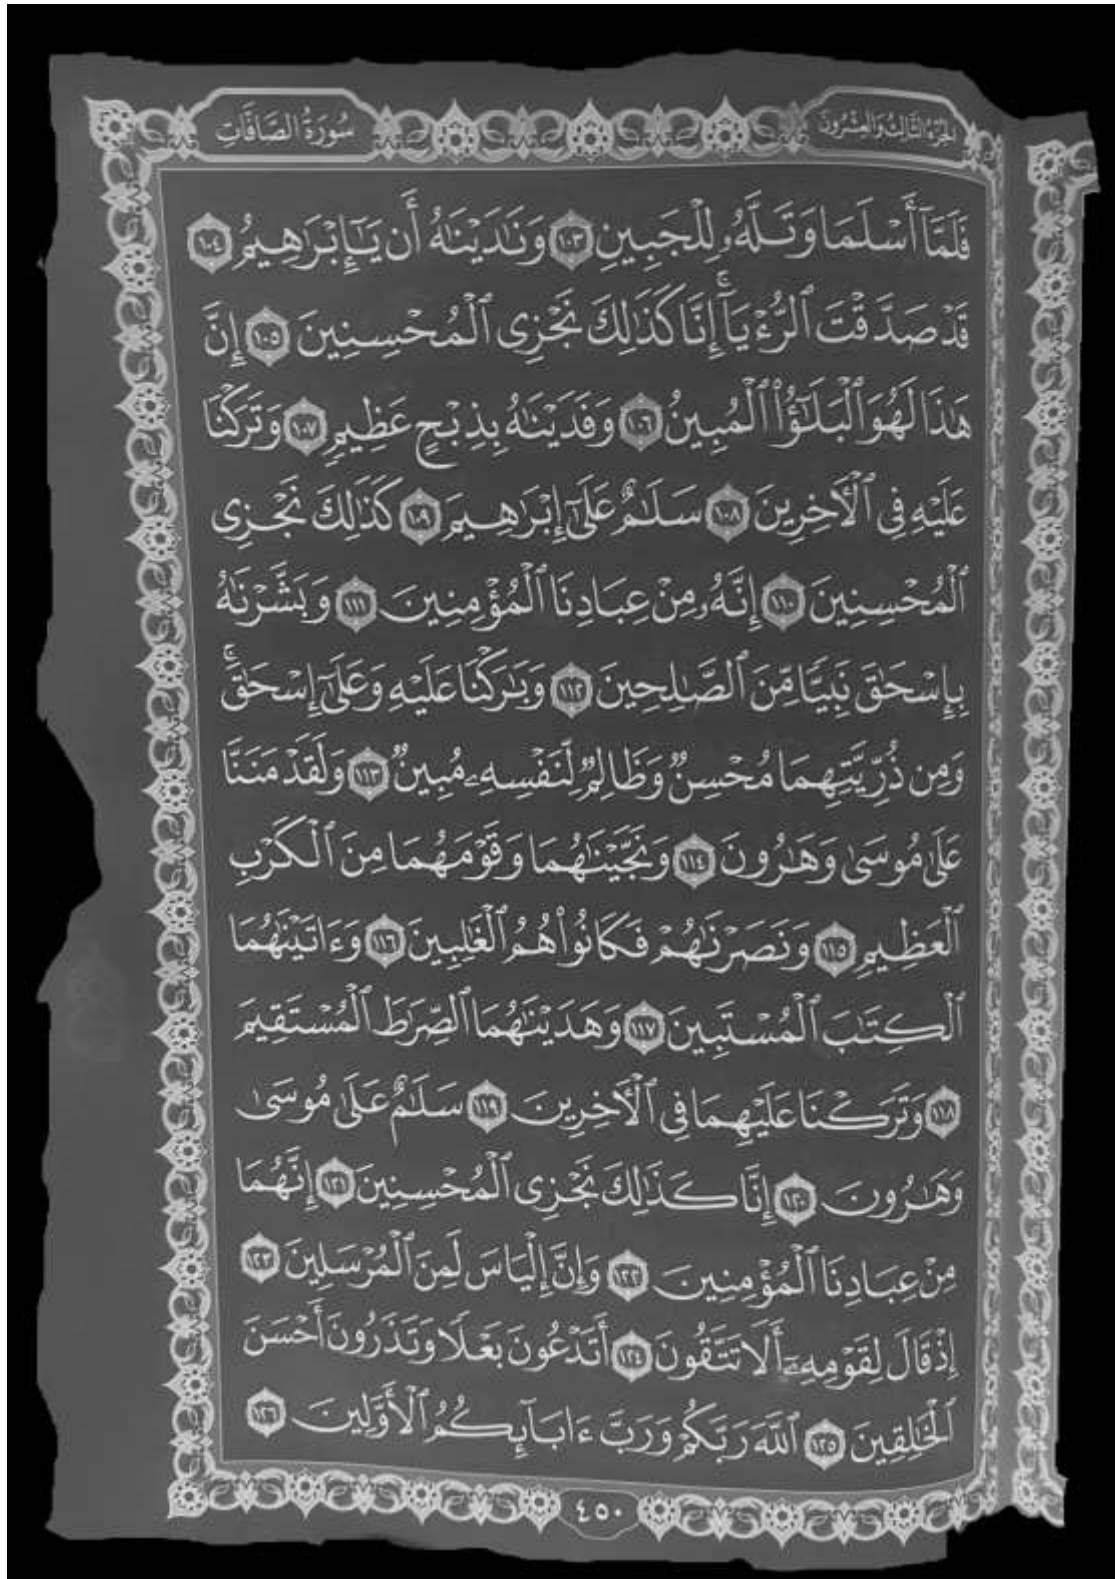 الجزء الثالث والعشرون
سورة الصافات
فَلَمَّآ أَسْلَمَا وَتَلَّهُۥ لِلْجَبِينِ ١٠٣ وَنَٰدَيْنَٰهُ أَن يَٰٓإِبْرَٰهِيمُ ١٠٤
قَدْ صَدَّقْتَ ٱلرُّءْيَآ ۚ إِنَّا كَذَٰلِكَ نَجْزِى ٱلْمُحْسِنِينَ ١٠٥ إِنَّ
هَٰذَا لَهُوَ ٱلْبَلَٰٓؤُا۟ ٱلْمُبِينُ ١٠٦ وَفَدَيْنَٰهُ بِذِبْحٍ عَظِيمٍ ١٠٧ وَتَرَكْنَا
عَلَيْهِ فِى ٱلْءَاخِرِينَ ١٠٨ سَلَٰمٌ عَلَىٰٓ إِبْرَٰهِيمَ ١٠٩ كَذَٰلِكَ نَجْزِى
ٱلْمُحْسِنِينَ ١١٠ إِنَّهُۥ مِنْ عِبَادِنَا ٱلْمُؤْمِنِينَ ١١١ وَبَشَّرْنَٰهُ
بِإِسْحَٰقَ نَبِيًّا مِّنَ ٱلصَّٰلِحِينَ ١١٢ وَبَٰرَكْنَا عَلَيْهِ وَعَلَىٰٓ إِسْحَٰقَ ۚ
وَمِن ذُرِّيَّتِهِمَا مُحْسِنٌ وَظَالِمٌ لِّنَفْسِهِۦ مُبِينٌ ١١٣ وَلَقَدْ مَنَنَّا
عَلَىٰ مُوسَىٰ وَهَٰرُونَ ١١٤ وَنَجَّيْنَٰهُمَا وَقَوْمَهُمَا مِنَ ٱلْكَرْبِ
ٱلْعَظِيمِ ١١٥ وَنَصَرْنَٰهُمْ فَكَانُوا۟ هُمُ ٱلْغَٰلِبِينَ ١١٦ وَءَاتَيْنَٰهُمَا
ٱلْكِتَٰبَ ٱلْمُسْتَبِينَ ١١٧ وَهَدَيْنَٰهُمَا ٱلصِّرَٰطَ ٱلْمُسْتَقِيمَ
١١٨ وَتَرَكْنَا عَلَيْهِمَا فِى ٱلْءَاخِرِينَ ١١٩ سَلَٰمٌ عَلَىٰ مُوسَىٰ
وَهَٰرُونَ ١٢٠ إِنَّا كَذَٰلِكَ نَجْزِى ٱلْمُحْسِنِينَ ١٢١ إِنَّهُمَا
مِنْ عِبَادِنَا ٱلْمُؤْمِنِينَ ١٢٢ وَإِنَّ إِلْيَاسَ لَمِنَ ٱلْمُرْسَلِينَ ١٢٣
إِذْ قَالَ لِقَوْمِهِۦٓ أَلَا تَتَّقُونَ ١٢٤ أَتَدْعُونَ بَعْلًا وَتَذَرُونَ أَحْسَنَ
ٱلْخَٰلِقِينَ ١٢٥ ٱللَّهَ رَبَّكُمْ وَرَبَّ ءَابَآئِكُمُ ٱلْأَوَّلِينَ ١٢٦
٤٥٠